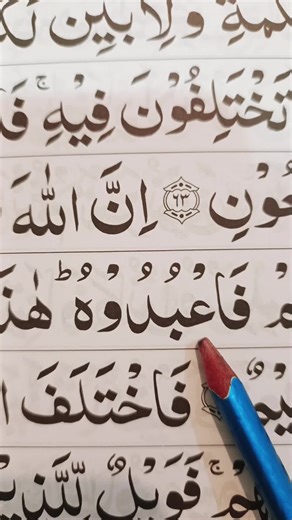 وَلِاُبَيِّنَ
تَخْتَلِفُوْنَ فِيْهِ ۚ
۝٦٣ اِنَّ اللّٰهَ
فَاعْبُدُوْهُ ؕ هٰذَا
فَاخْتَلَفَ
فَوَيْلٌ لِّلَّذِيْنَ